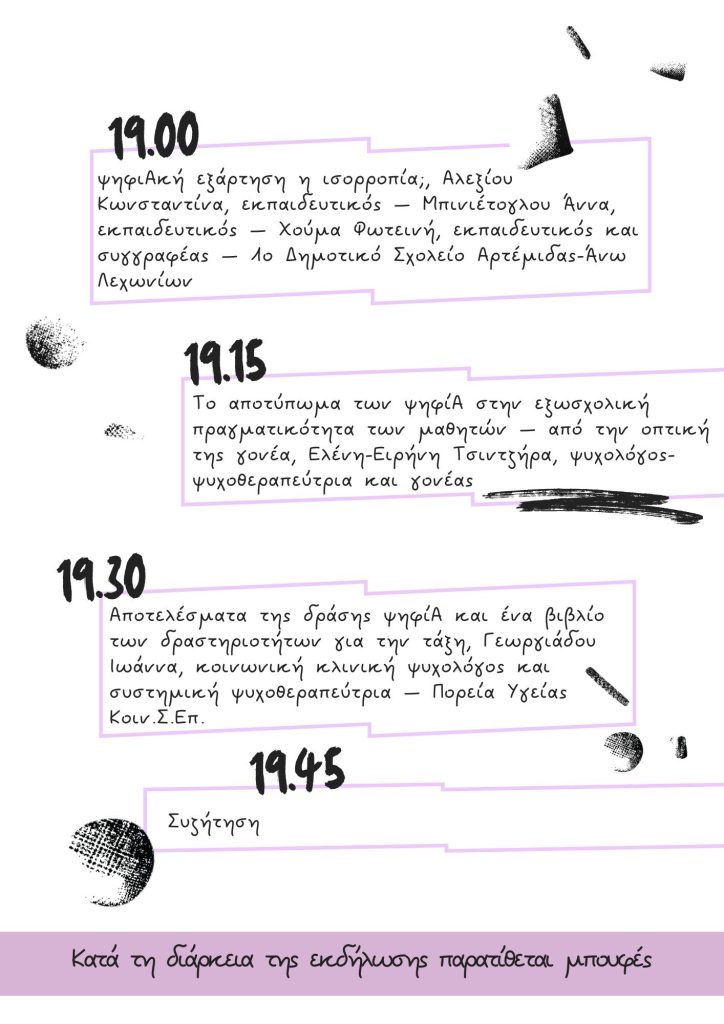 19.00
ψηφιΑκή εξάρτηση η ισορροπία;, Αλεξίου
Κωνσταντίνα, εκπαιδευτικός – Μπινιέτογλου Άννα,
εκπαιδευτικός – Χούμα Φωτεινή, εκπαιδευτικός και
συγγραφέας – 1ο Δημοτικό Σχολείο Αρτέμιδας-Άνω
Λεχωνίων
19.15
Το αποτύπωμα των ψηφίΑ στην εξωσχολική
πραγματικότητα των μαθητών – από την οπτική
της γονέα, Ελένη-Ειρήνη Τσιντζήρα, ψυχολόγος-
ψυχοθεραπεύτρια και γονέας
19.30
Αποτελέσματα της δράσης ψηφίΑ και ένα βιβλίο
των δραστηριοτήτων για την τάξη, Γεωργιάδου
Ιωάννα, κοινωνική κλινική ψυχολόγος και
συστημική ψυχοθεραπεύτρια – Πορεία Υγείας
Κοιν.Σ.Επ.
19.45
Συζήτηση
Κατά τη διάρκεια της εκδήλωσης παρατίθεται μπουφές